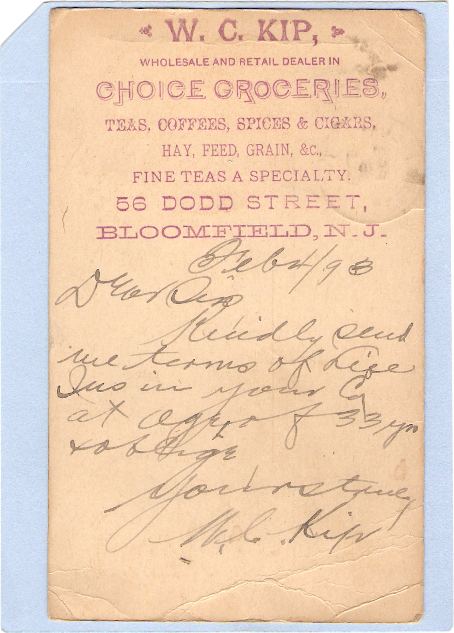 W. C. KIP,
WHOLESALE AND RETAIL DEALER IN
CHOICE GROCERIES,
TEAS, COFFEES, SPICES & CIGARS,
HAY, FEED, GRAIN, &c.,
FINE TEAS A SPECIALTY.
56 DODD STREET,
BLOOMFIELD, N. J.
Feb 4/93
Dear Sir
Kindly send
me terms of Life
Ins in your Co
at age of 33 yrs
& oblige
Yours truly
W. C. Kip